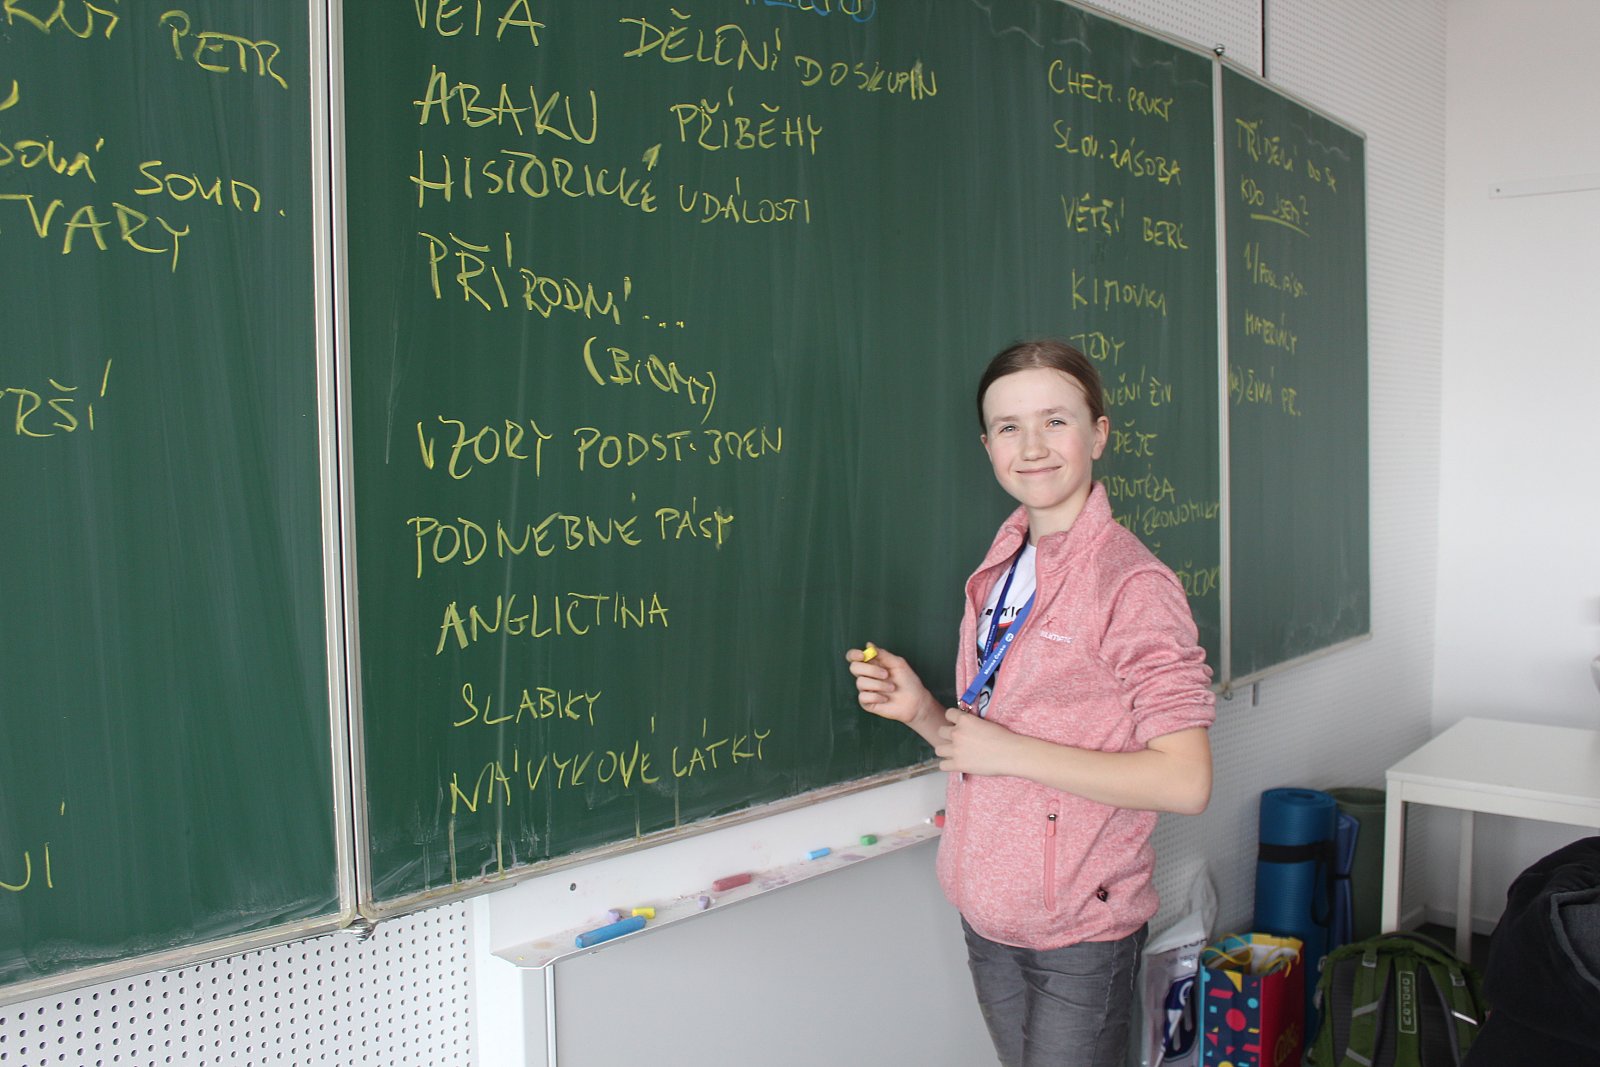 PETR
SOUD.
TVARY
VĚTA
DĚLENÍ DO SKUPIN
ABAKU
PŘÍBĚHY
HISTORICKÉ UDÁLOSTI
PŘÍRODNÍ...
(BIOMY)
VZORY PODST. JMEN
PODNEBNÉ PÁSY
ANGLIČTINA
SLABIKY
NÁVYKOVÉ LÁTKY
CHEM. PRVKY
SLOV. ZÁSOBA
VĚTŠÍ BERE
KITOVKA
JEDY
DĚJE
EKONOMIKY
PŘIDĚLENÍ DO SK
KDO JSEM?
MATERIÁLY
ŽIVÁ PŘ.